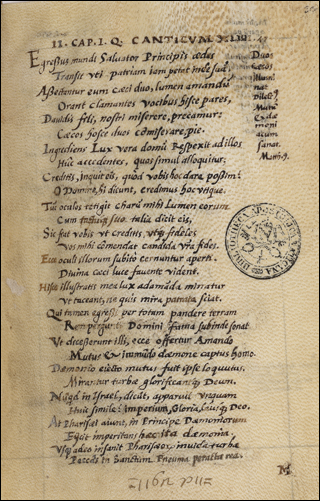 II. CAP. I. Q. CANTICUM XLIII.
Egressus mundi Salvator Principis aedes
Transit uti patriam iam petat inde suam
Duo
Caecos
Illumi
nat
Mutū
Exdae
moni
acum
sanat.
Assectantur eum caeci duo, lumen amandū
Orant clamantes vocibus hisce pares,
Davidis fili, nostri miserere, precamur:
Caecos hosce duos comiserare, pie.
Ingrediens Lux vera domū Respexit ad illos
Huc accedentes, quos simul alloquitur.
Creditis, inquit eis, quod vobis hoc dare possim?
O Domine, hi dicunt, credimus hoc utique.
Tūc oculos tetigit charū mihi Lumen eorum
Cum talia dicit eis,
Sic fiat vobis ut creditis, utque fideles
Vos mihi cōmendat candida vrā fides.
Ecce oculi illorum subito cernuntur aperti
Divina caeci luce favente vident.
Hisce illustratis mea lux adamāda minatur
Ut taceant, ne quis mira patrata sciat.
Qui tamen egressi per totam pandere terram
Rem pergunt: Domini fama subinde sonat.
Ut discesserunt illi, ecce offertur Amando
Mutus immūdo daemone captus homo.
Daemonio eiecto mutus fuit ipse loquutus,
Mirantur turbae glorificantque Deum.
Nūqd in Israel, dicūt, apparuit unquam
Huic simile? Imperium, Gloria, Deo.
At Pharisaei aiunt, in Principe Daemoniorum
Eijcit imperitans hac ita daemonia.
Usq adeo insanit Pharisaeor, invida turba
Parcens in Sanctum Pneuma patrata rea.
M
BIBLIOTHECA APOSTOLICA VATICANA